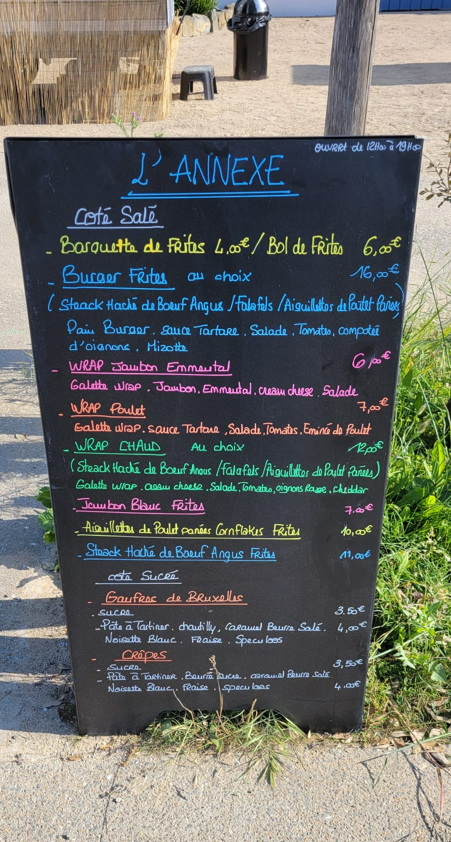 OUVERT de 12H00 à 19H00
L'ANNEXE
Coté Salé
- Barquette de Frites 4,00€ / Bol de Frites 6,00€
- Burger Frites au choix 16,00€
( Steack Haché de Boeuf Angus / Falafels / Aiguillettes de Poulet Panées)
Pain Burger . sauce Tartare . Salade . Tomates, compotée
d'oignons . Mizotte
- WRAP Jambon Emmental 6,00€
Galette WRAP . Jambon, Emmental, cream cheese . Salade
- WRAP Poulet 7,00€
Galette WRAP . sauce Tartare , Salade, Tomates, Eminé de Poulet
- WRAP CHAUD Au choix 12,00€
(Steack Haché de Boeuf Angus / Falafels / Aiguillettes de Poulet Panées)
Galette WRAP . cream cheese . Salade, Tomates, oignons Rouge , cheddar
- Jambon Blanc Frites 7,00€
- Aiguillettes de Poulet panées Cornflakes Frites 10,00€
- Steack Haché de Boeuf Angus Frites 11,00€
coté Sucré
- Gaufres de Bruxelles
- sucre 3.50€
- Pâte à Tartiner . chantilly , Caramel Beurre Salé . 4,00€
Noisette Blanc . Fraise . Speculoos
- Crêpes
- Sucre 3,50€
- Pâte à Tartiner . Beurre Sucre . caramel Beurre Salé
Noisette Blanc , Fraise , speculoos 4.00€